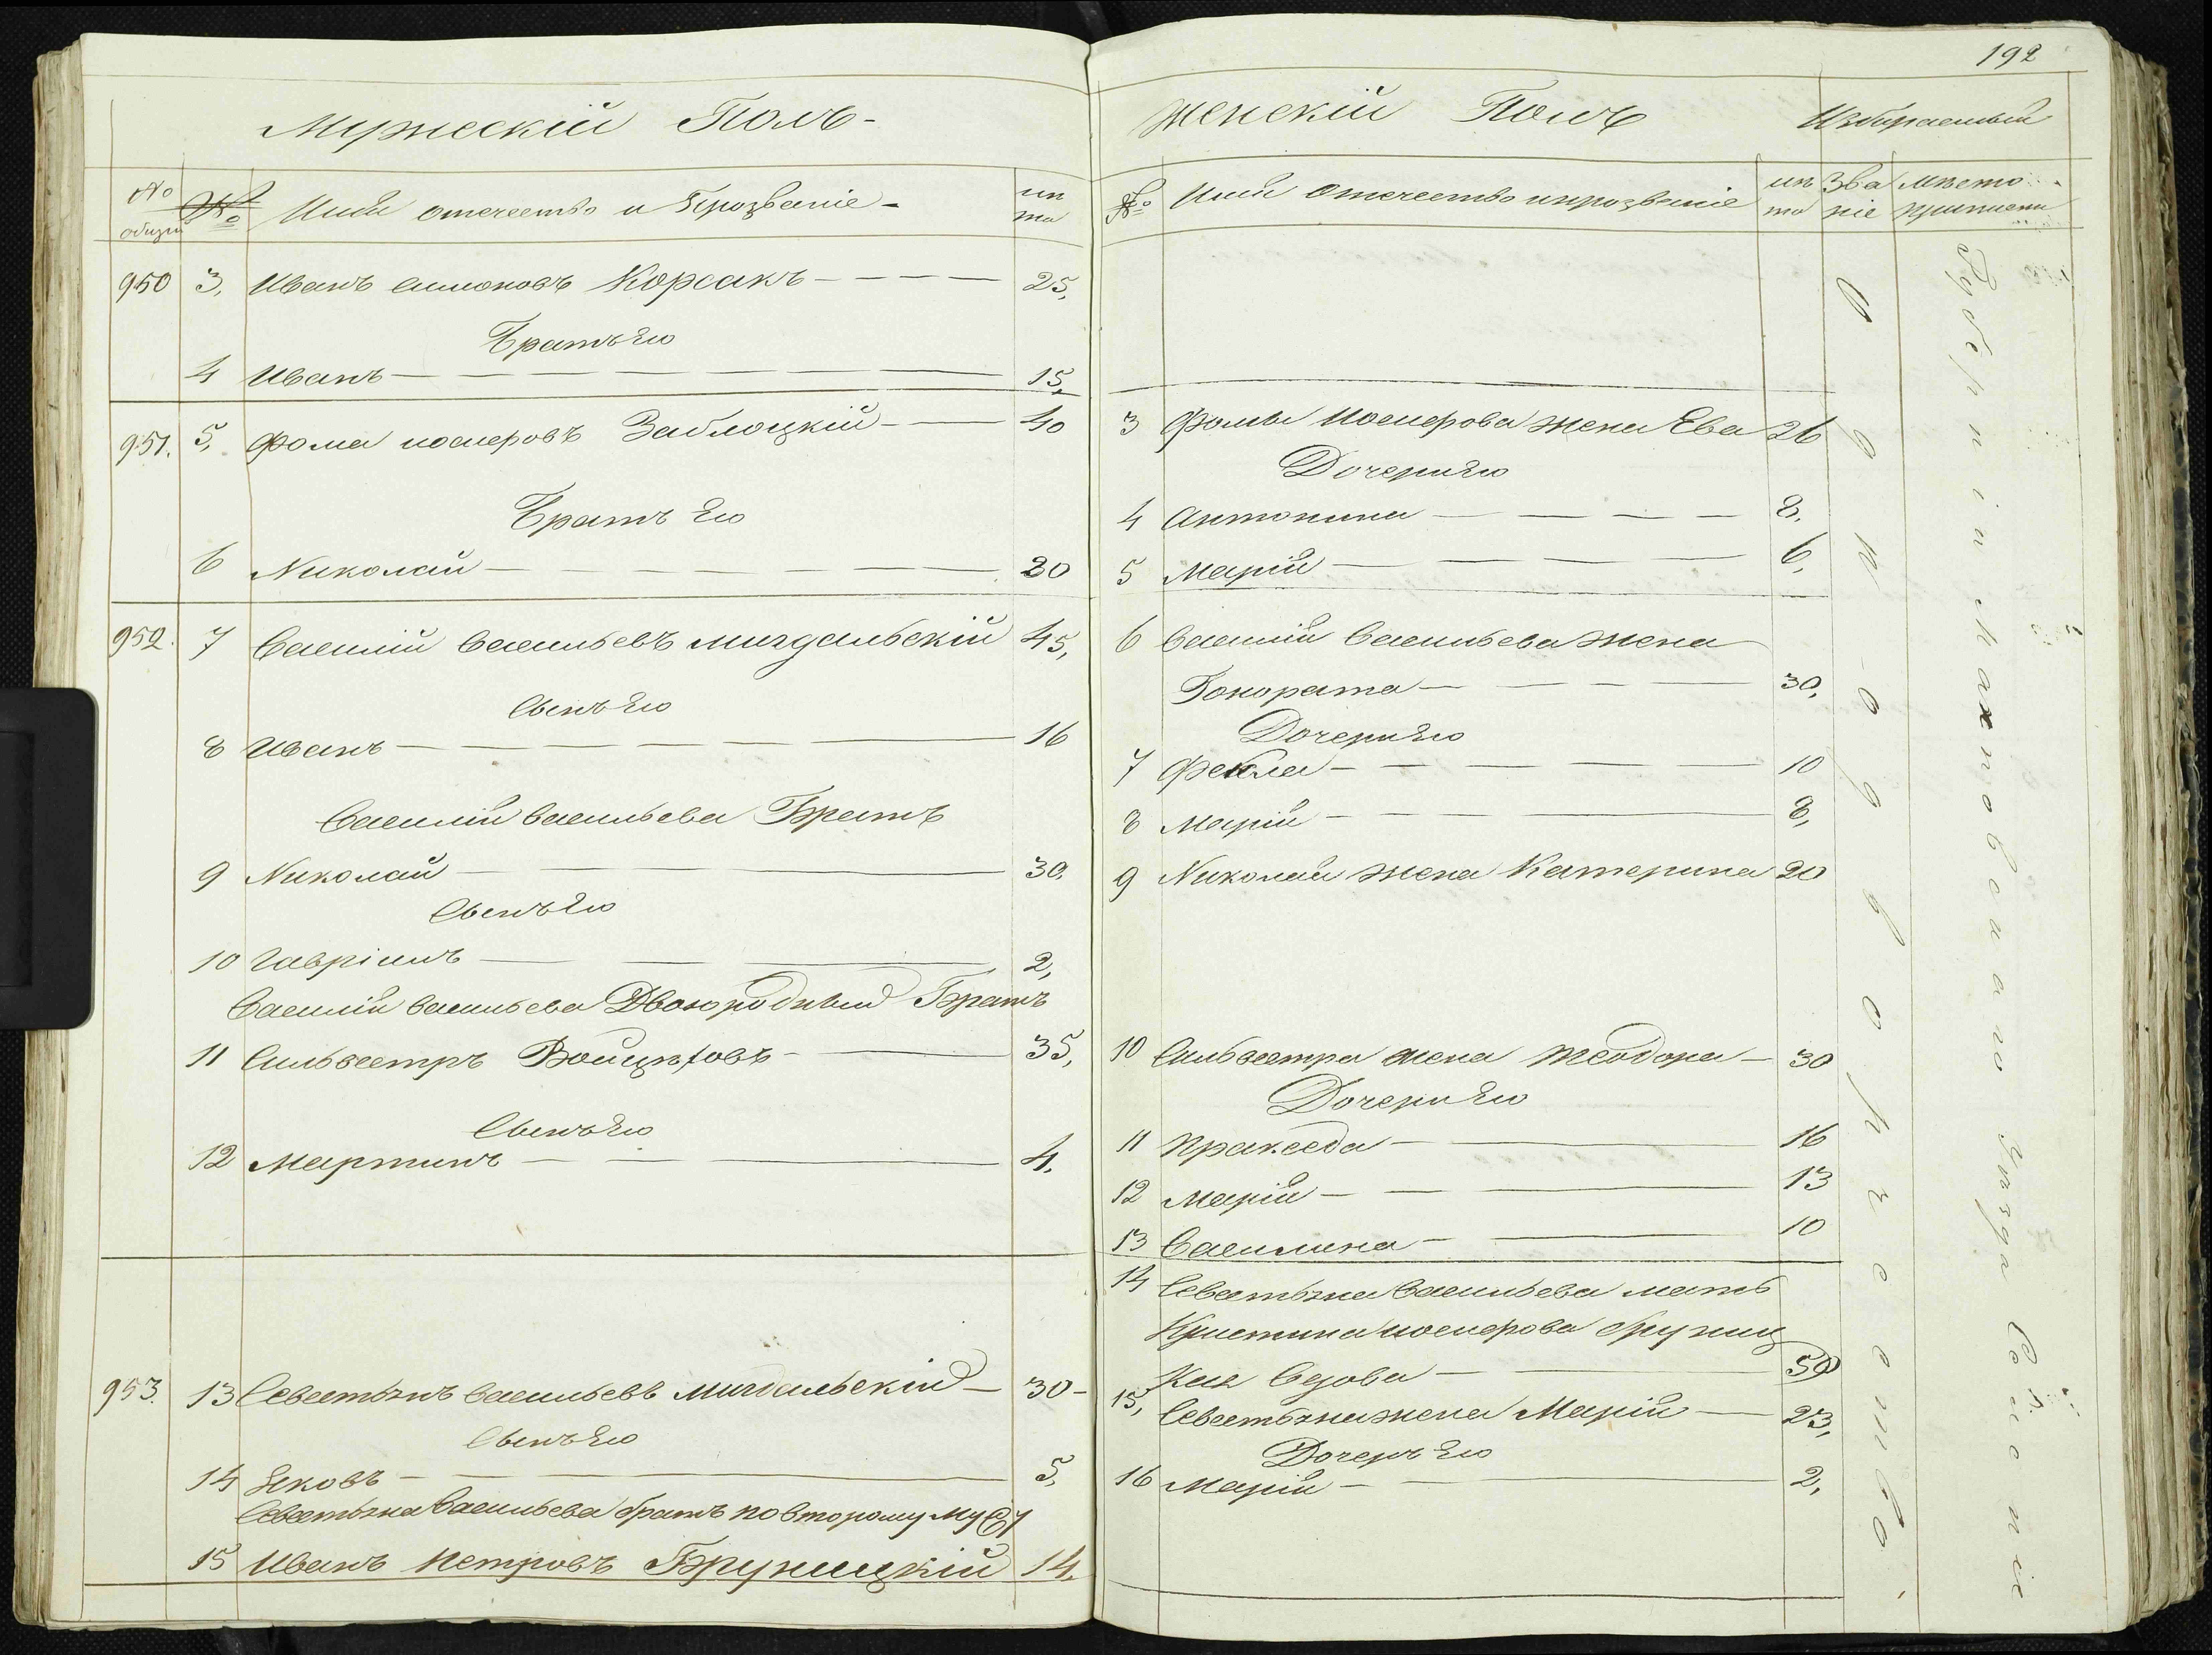 Мужескій Полъ
№ общій № Имя отечество и Прозваніе лѣта
950 3, Иванъ Симоновъ Корсакъ 25,
Братъ Его
4 Иванъ 15,
951. 5, Фома иосифовъ Заблоцкій 40
Братъ Его
6 Николай 20
952. 7 Василій Васильевъ Мигдальскій 45,
Сынъ Его
8 Иванъ 16
Василія Васильева Братъ
9 Николай 30,
Сынъ Его
10 Гавріилъ 2,
Василія Васильева Двоюродный Братъ
11 Сильвестръ 35,
Сынъ Его
12 Мартинъ 4,
953. 13 Севастьянъ Васильевъ Мигдальскій 30
Сынъ Его
14 Яковъ 5,
Севастьяна Васильева братъ по второму
15 Иванъ Петровъ Бруницкій 14,
192
Женскій Полъ Избираемый
№ Имя Отечество и прозваніе лѣта Званіе Мѣсто приписки
3 Фомы Иосифова жена Ева 26
Дочери Его
4 Антонина 8,
5 Марія 6,
6 Василія Васильева жена
Гонората 30,
Дочери Его
7 Фекла 10
8 Марія 8,
9 Николая жена Катерина 20
10 Сильвестра жена Теодора 30
Дочери Его
11 Пракседа 16
12 Марія 13
13 Василина 10
14 Севастьяна Васильева мать
Кристина иосифова Бруниц
кая Вдова 50
15, Севастьяна жена Марія 23,
Дочерь Его
16 Марія 2,
Губерніи Уѣзда